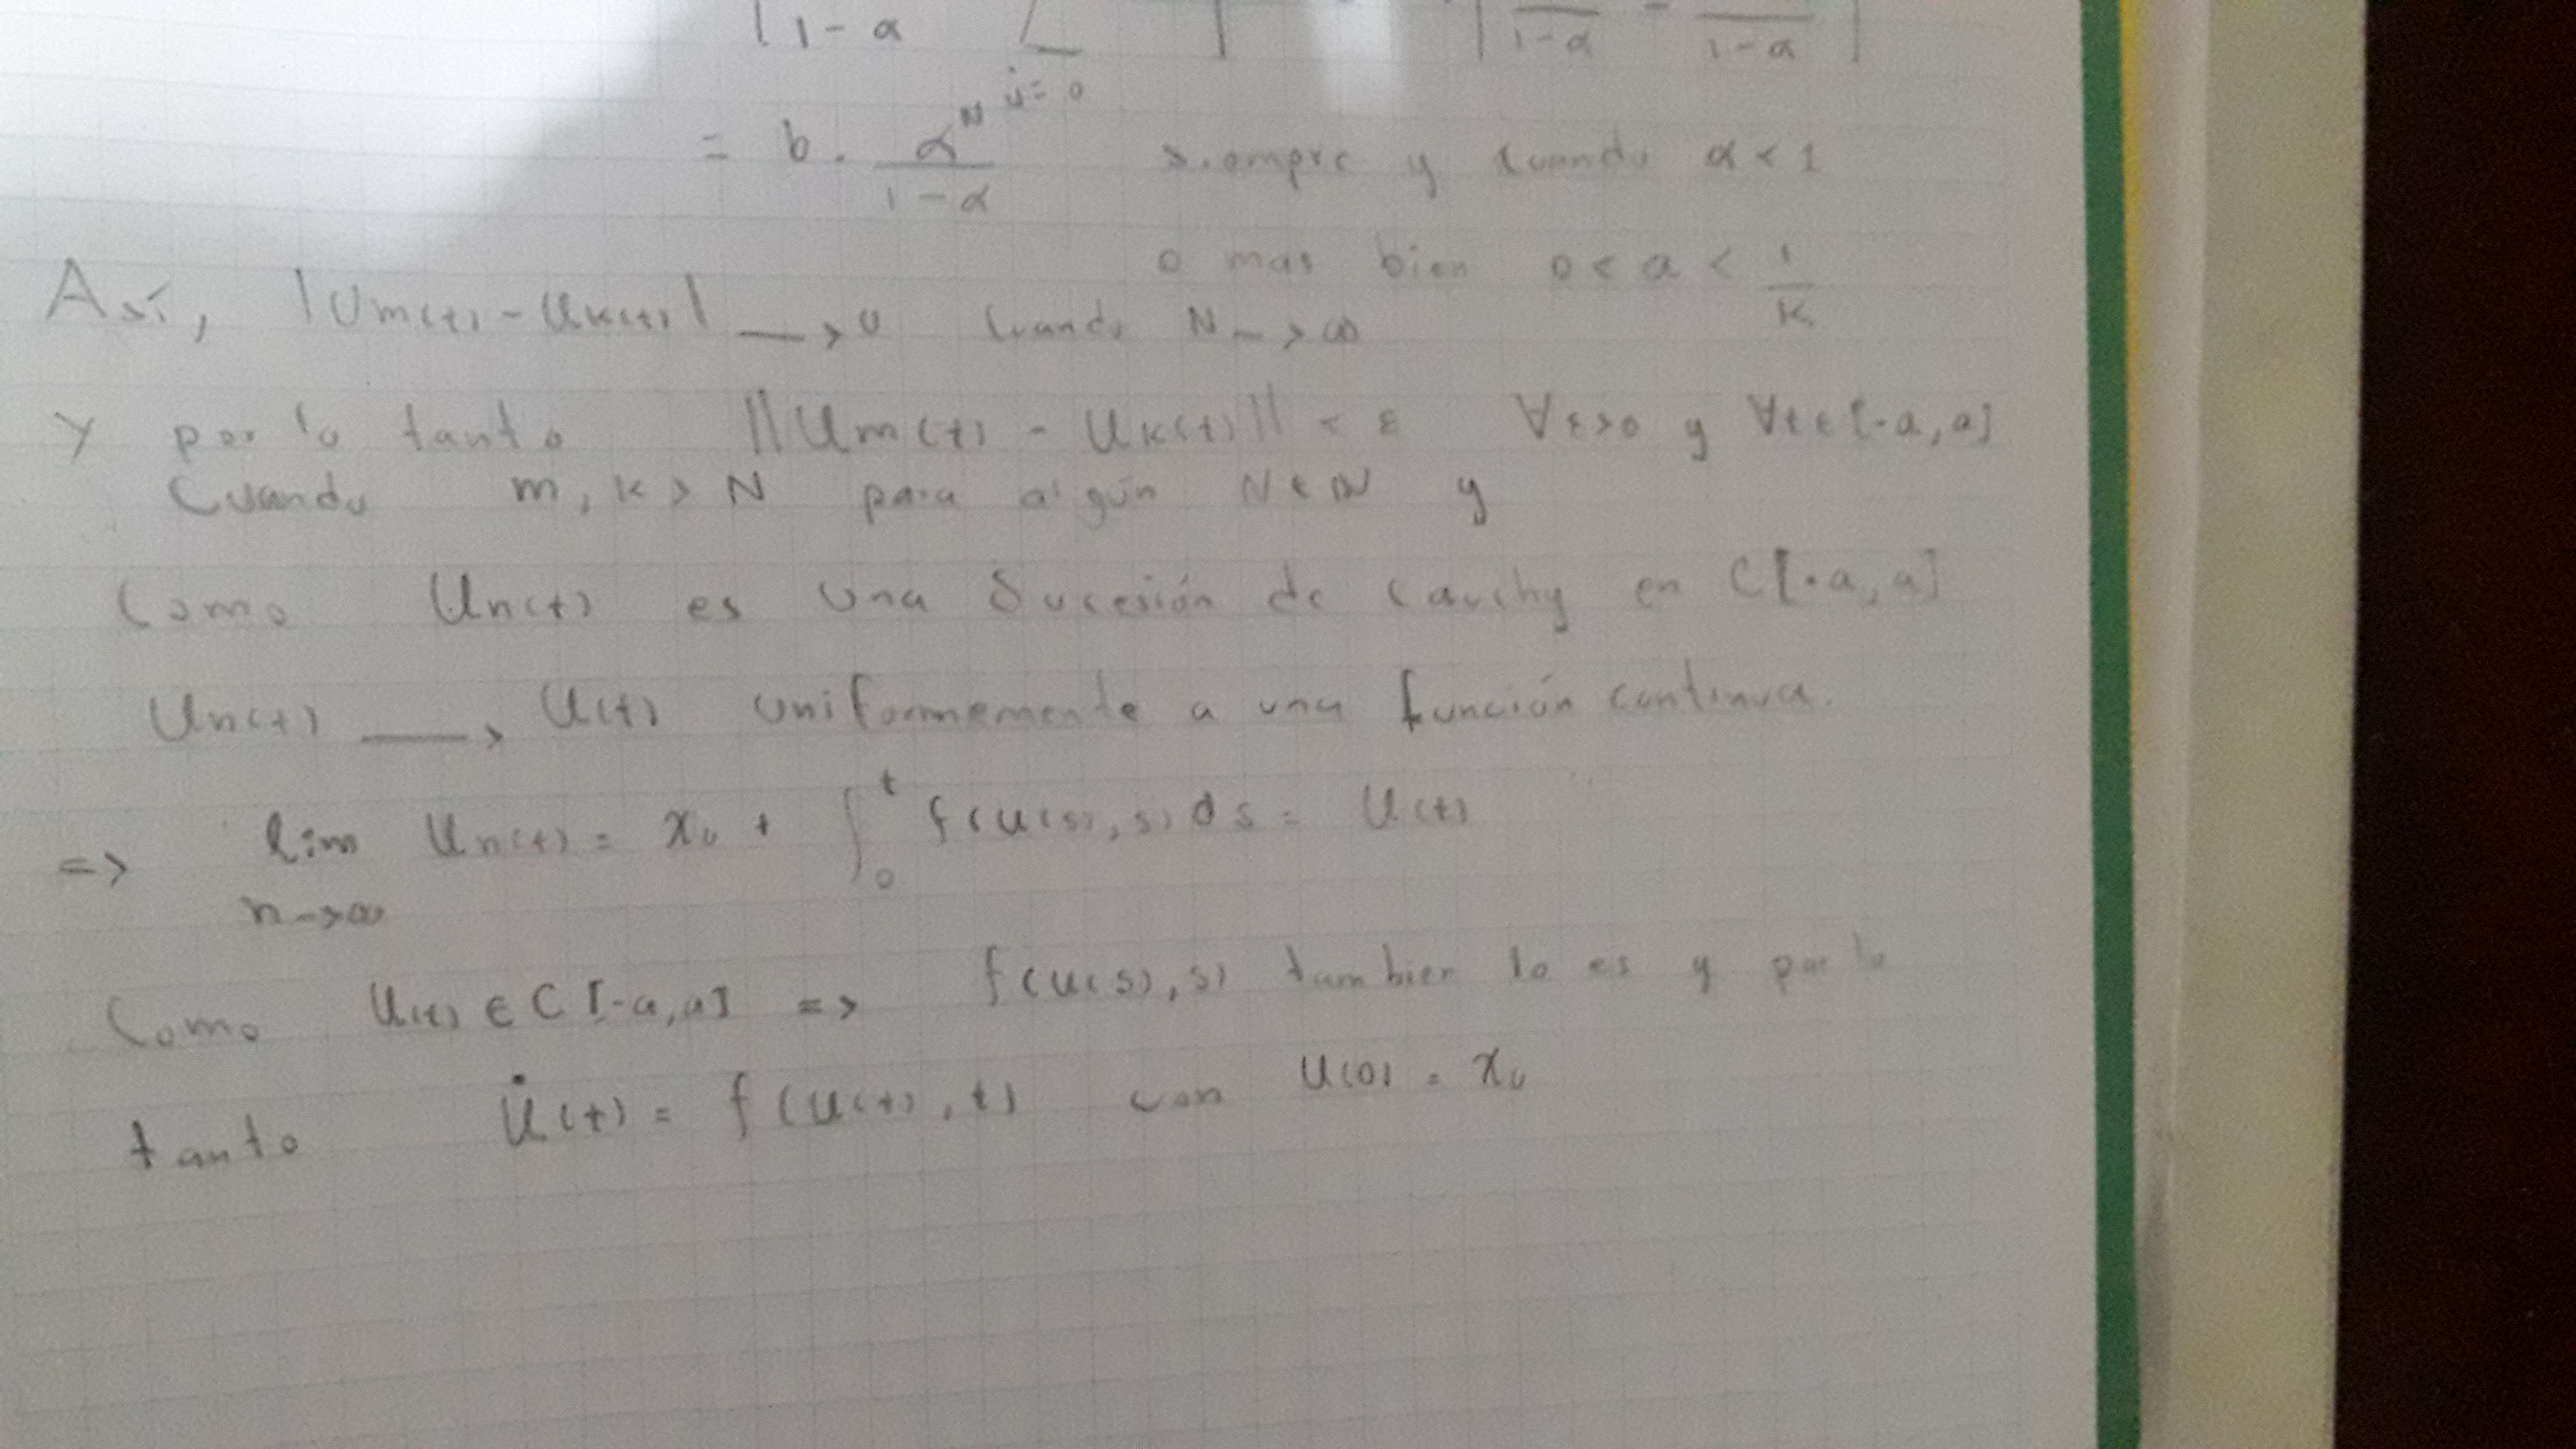 |1-α Σ i=0 | |1-α - 1-α|
= b · α^N / 1-α siempre y cuando α < 1
o mas bien 0 < a < 1/K
Así, |Um(t) - Uk(t)| → 0 cuando N → ∞
Y por lo tanto ||Um(t) - Uk(t)|| < ε ∀ε>0 y ∀t∈[-a,a]
Cuando m, k > N para algún N ∈ ℕ y
Como Un(t) es una Sucesión de Cauchy en C[-a,a]
Un(t) → U(t) uniformemente a una función continua.
=> lim n→∞ Un(t) = x₀ + ∫₀ᵗ f(u(s),s)ds = U(t)
Como U(t) ∈ C[-a,a] => f(u(s),s) tambien lo es y por lo
tanto U̇(t) = f(U(t),t) con U(0) = x₀